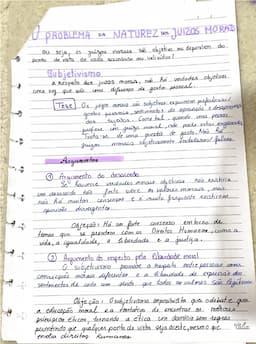 O PROBLEMA DA NATUREZA DOS JUÍZOS MORAIS
Ou seja, os juízos morais são objetivos ou dependem do
ponto de vista de cada sociedade ou indivíduo?
Subjetivismo
A respeito dos juízos morais, não há verdades objetivas
uma vez que são uma diferença de gosto pessoal.
Tese: Os juízos morais são subjetivos, expressam preferências/
gostos pessoais, sentimentos de aprovação e desaprovação
dos sujeitos. Como tal, quando uma pessoa
profere um juízo moral, não pode estar enganada
Trata-se de uma questão de gosto. Não há
juízos morais objetivamente verdadeiros/falsos.
Argumentos
① Argumento do desacordo
Se houvesse verdades morais objetivas não existiria
um desacordo tão forte sobre os valores morais, mas
não há muitos consensos e é muito frequente existirem
opiniões divergentes.
Objeção: Há um forte consenso em torno de
temas que se prendem com os Direitos Humanos, como a
vida, a igualdade, a liberdade e a justiça.
② Argumento do respeito pela liberdade moral
O subjetivismo promove o respeito entre pessoas com
conceções morais diferentes e a liberdade de expressão dos
sentimentos de cada um, visto que todos os valores são legítimos
Objeção: O subjetivismo impossibilita que o debate quer
a educação moral e a tentativa de encontrar os melhores
princípios éticos, tornando a ética um domínio sem regras
permitindo que qualquer ponto de vista seja aceite, mesmo que
viole direitos humanos